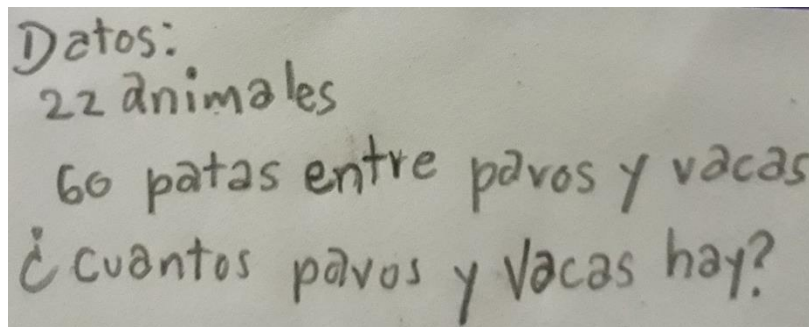 Datos:
22 animales
60 patas entre pavos y vacas
¿cuantos pavos y vacas hay?